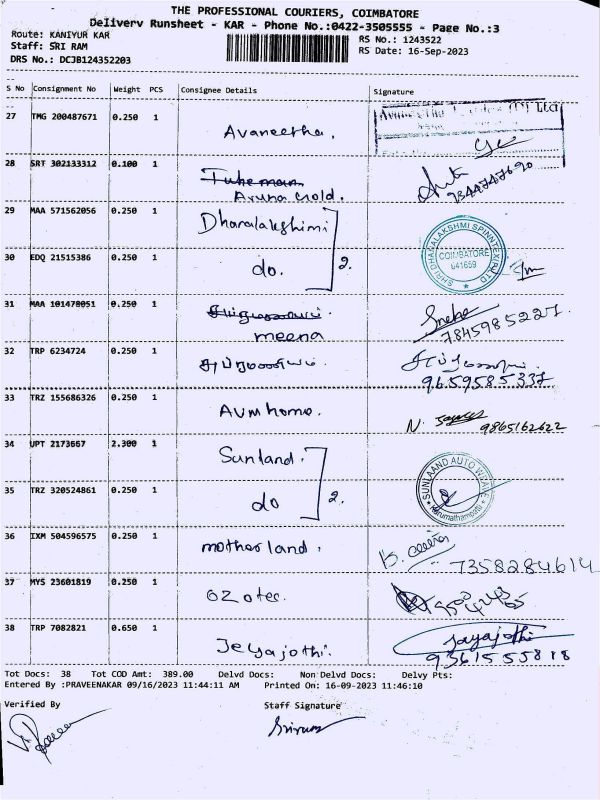 THE PROFESSIONAL COURIERS, COIMBATORE
Delivery Runsheet - KAR - Phone No.:0422-3505555 - Page No.:3
Route: KANIYUR KAR
RS No.: 1243522
Staff: SRI RAM
RS Date: 16-Sep-2023
DRS No.: DCJB124352203
S No Consignment No Weight PCS Consignee Details Signature
27 TMG 200487671 0.250 1
Avaneetha.
28 SRT 302133312 0.100 1
Aruna Gold.
29 MAA 571562056 0.250 1 Dharalakshimi
SHRI DHANALAKSHMI SPINNTEX (P) LTD
COIMBATORE
641659
30 EDQ 21515386 0.250 1 do. 2.
31 MAA 101478051 0.250 1
meena
Sneha
7845985227
32 TRP 6234724 0.250 1 சுப்ரமணியம்.
9659585337
33 TRZ 155686326 0.250 1 AVM home.
N.
9865162622
34 UPT 2173667 2.300 1 Sunland.
SUNLAAND AUTO WEAVE
Karumathampatti
35 TRZ 320524861 0.250 1 do 2.
36 IXM 504596575 0.250 1 motherland.
7358284614
37 MYS 23601819 0.250 1 OZotec.
38 TRP 7082821 0.650 1 Jeyajothi.
Jayajothi
9361555818
Tot Docs: 38 Tot COD Amt: 389.00 Delvd Docs: Non Delvd Docs: Delvy Pts:
Entered By :PRAVEENAKAR 09/16/2023 11:44:11 AM Printed On: 16-09-2023 11:46:10
Verified By Staff Signature
Sriram